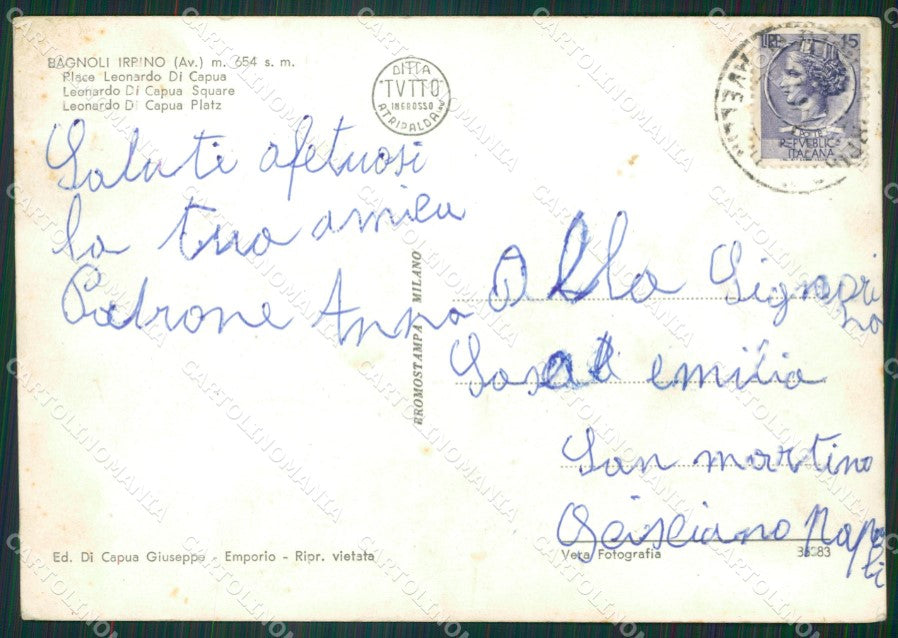 BAGNOLI IRPINO (Av.) m. 654 s. m.
Place Leonardo Di Capua
Leonardo Di Capua Square
Leonardo Di Capua Platz
DITTA
TVTTO
INGROSSO
ATRIPALDA
LIRE 15
REPVBBLICA
ITALIANA
Saluti afetuosi
la tua amica
Petrone Anna
EROMOSTAMPA MILANO
Alla Signori
na
emilia
San martino
Scisciano Napo
li
Ed. Di Capua Giuseppe - Emporio - Ripr. vietata
Vera Fotografia
CARTOLINOMANIA